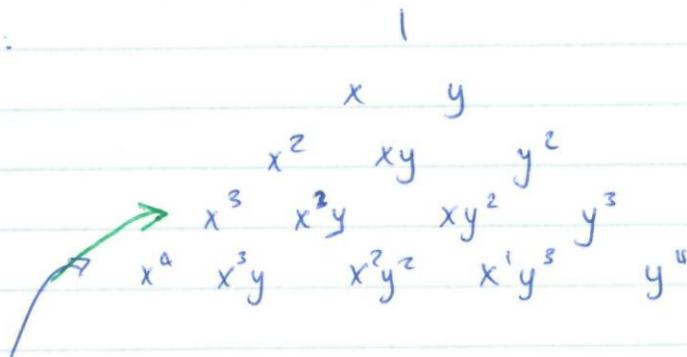 1
x y
x² xy y²
x³ x²y xy² y³
x⁴ x³y x²y² x¹y³ y⁴